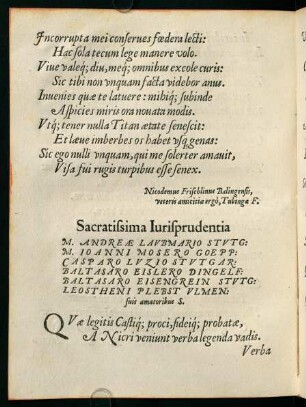 Incorrupta mei conserues fœdera lecti:
Hac sola tecum lege manere volo.
Viue valeq́; diu, meq́; omnibus excole curis:
Sic tibi non vnquam facta videbor anus.
Inuenies quæ te latuere: mihiq́; subinde
Aspicies miris ora nouata modis.
Vtq́; tener nulla Titan ætate senescit:
Et læue imberbes os habet vsq́; genas:
Sic ego nulli vnquam, qui me solerter amauit,
Visa fui rugis turpibus esse senex.
Nicodemus Frischlinus Balingensis,
veteris amicitiæ ergò, Tubingæ F.
Sacratissima Iurisprudentia
M. ANDREÆ LAVBMARIO STVTG:
M. IOANNI MOSERO GOEPP:
CASPARO LVZIO STVTGAR:
BALTASARO EISLERO DINGELF:
BALTASARO EISENGREIN STVTG:
LEOSTHENI PLEBST VLMEN:
suis amatoribus S.
QVæ legitis Castiq́; proci, fideiq́; probatæ,
A Nicri veniunt verba legenda vadis.
Verba